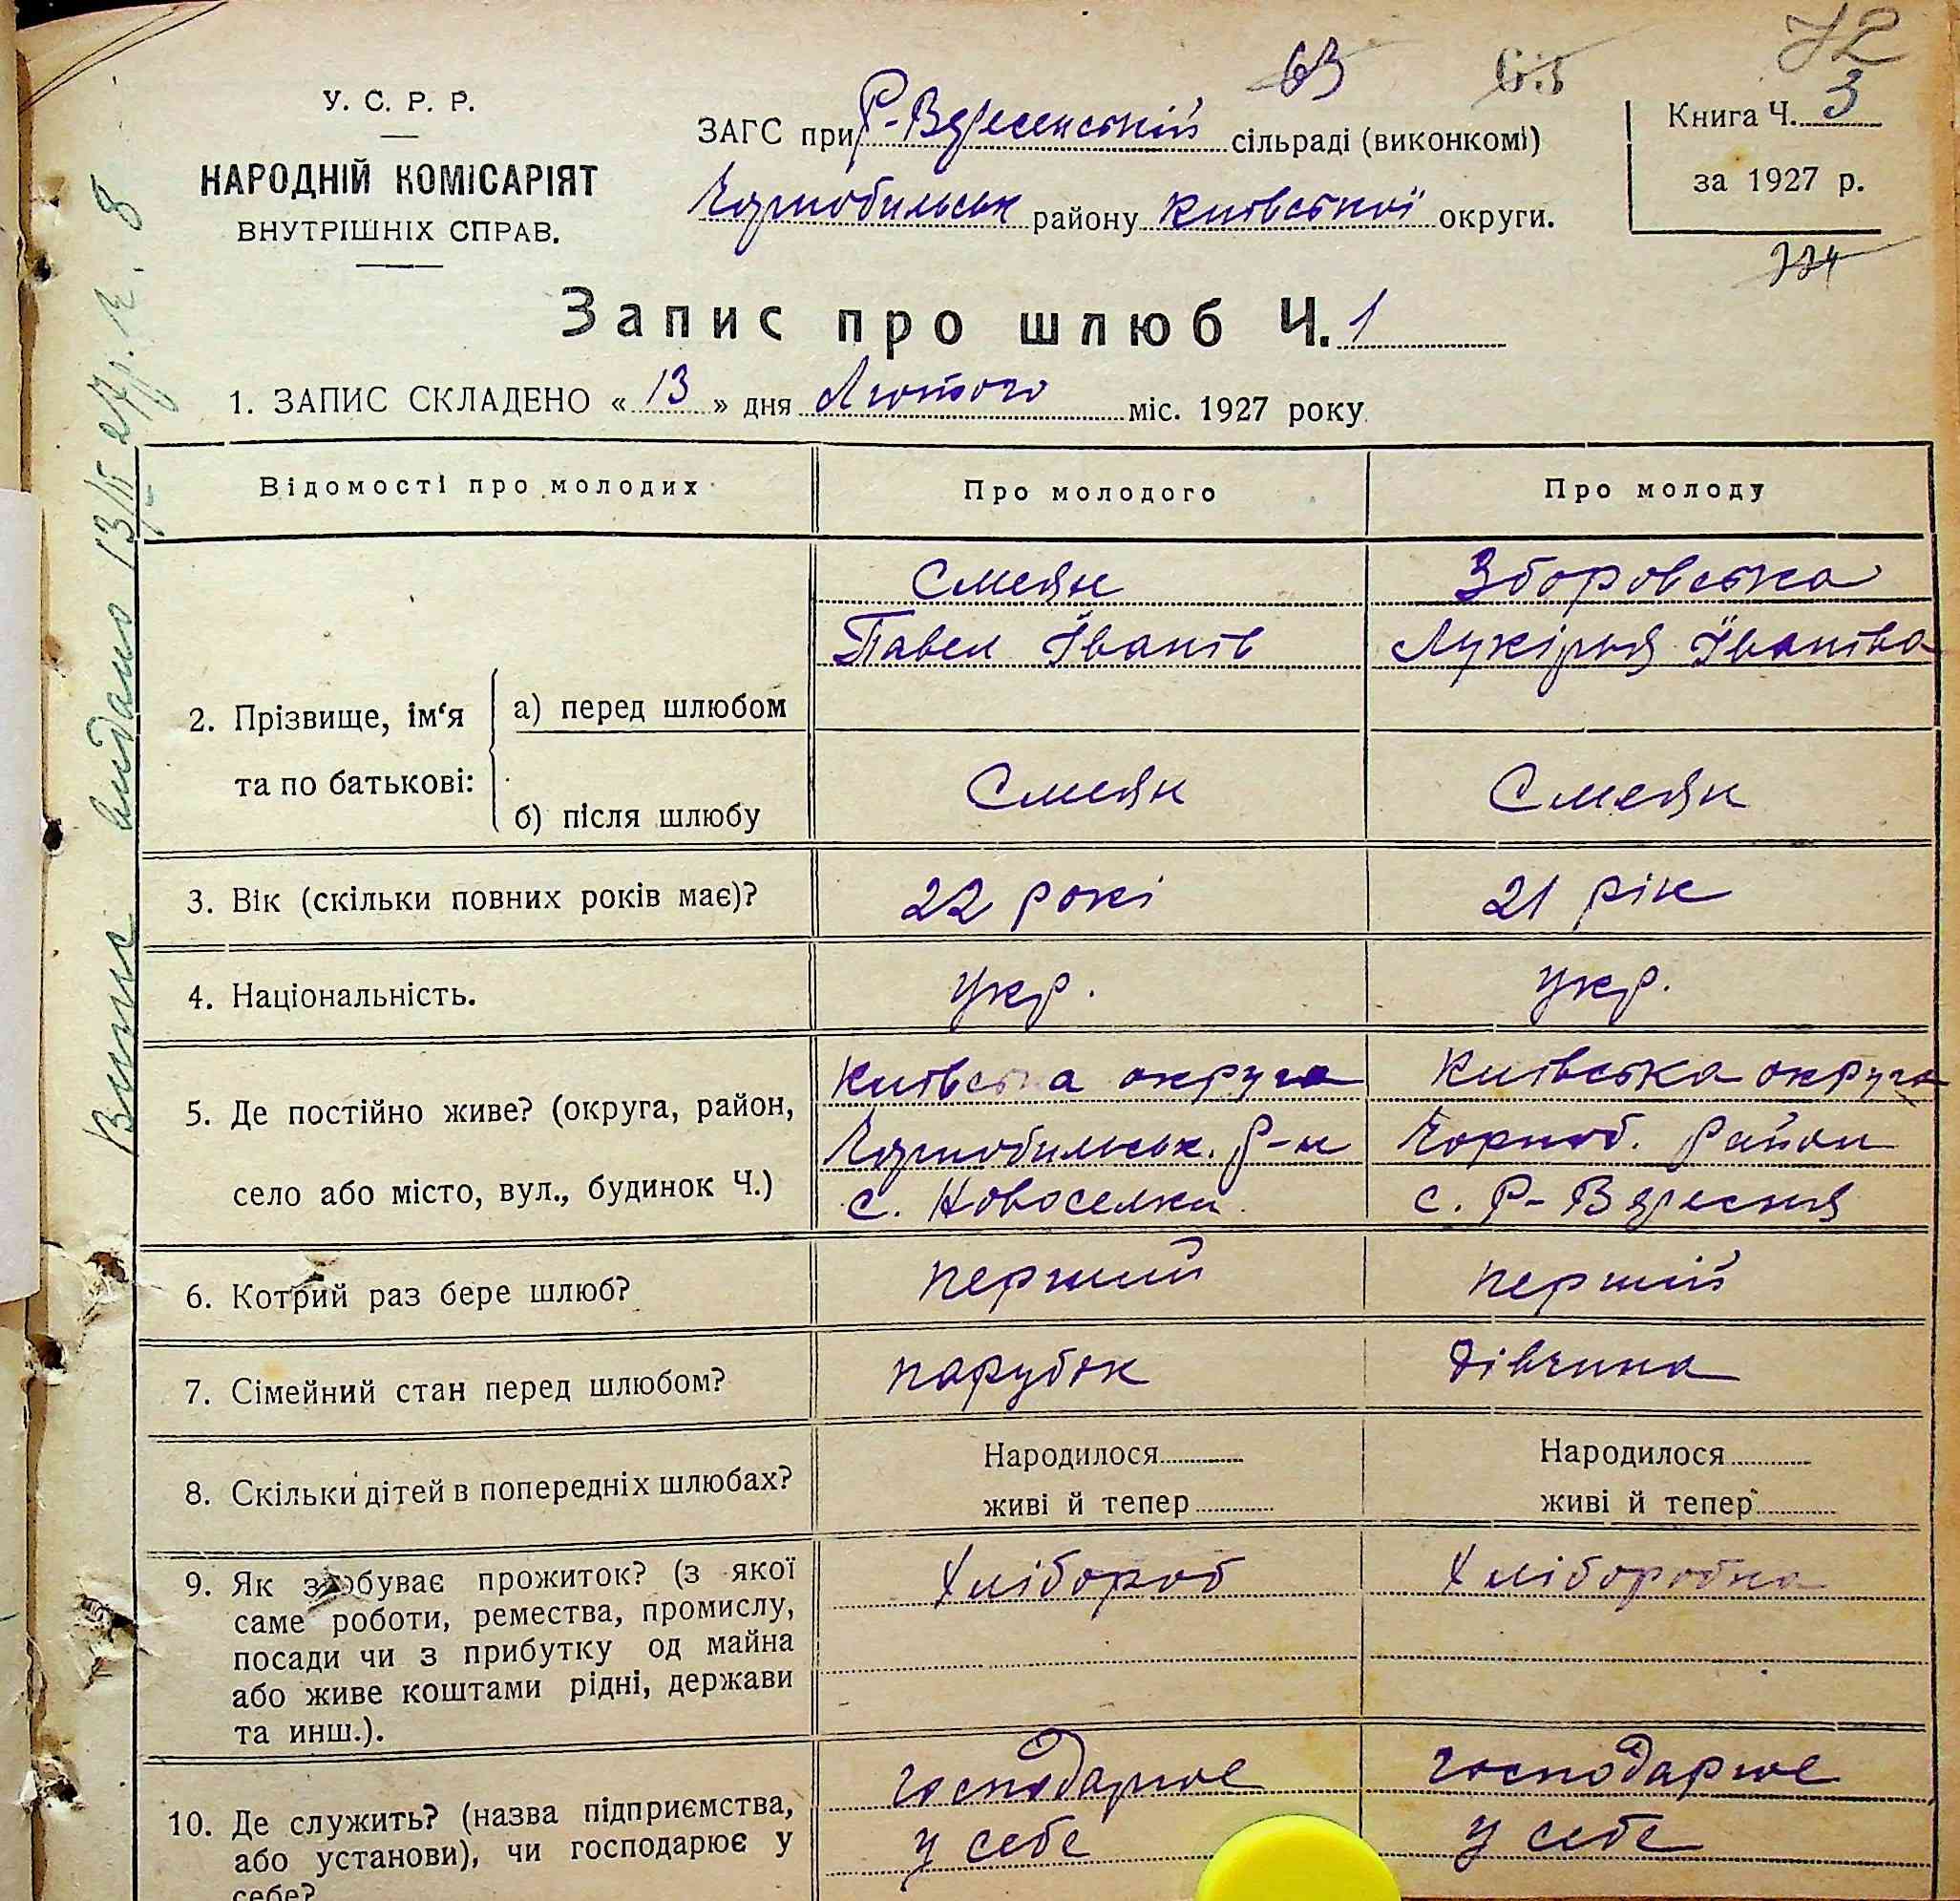 42
63
63
У. С. Р. Р.
НАРОДНІЙ КОМІСАРІЯТ
ВНУТРІШНІХ СПРАВ.
ЗАГС при Р-Вересенській сільраді (виконкомі)
Чорнобильськ району Київської округи.
Книга Ч. 3
за 1927 р.
Запис про шлюб Ч. 1
1. ЗАПИС СКЛАДЕНО « 13 » дня Лютого міс. 1927 року
Відомості про молодих Про молодого Про молоду
Смеян Зборовська
Павел Іванів Лукірия Іванівна
2. Прізвище, ім'я та по батькові: а) перед шлюбом
б) після шлюбу Смеян Смеян
3. Вік (скільки повних років має)? 22 рокі 21 рік
4. Національність. укр. укр.
5. Де постійно живе? (округа, район, Київська округа Київська округа
село або місто, вул., будинок Ч.) Чорнобильськ. р-н Чорноб. район
с. Новоселки с. Р-Вересня
6. Котрий раз бере шлюб? перший першій
7. Сімейний стан перед шлюбом? парубок дівчина
8. Скільки дітей в попередніх шлюбах? Народилося Народилося
живі й тепер живі й тепер
9. Як здобуває прожиток? (з якої Хлібороб Хліборобка
саме роботи, ремества, промислу,
посади чи з прибутку од майна
або живе коштами рідні, держави
та инш.).
10. Де служить? (назва підприємства, господарює господарює
або установи), чи господарює у у себе у себе
себе?
Випис видано 13/II 27 р. Ч. 8